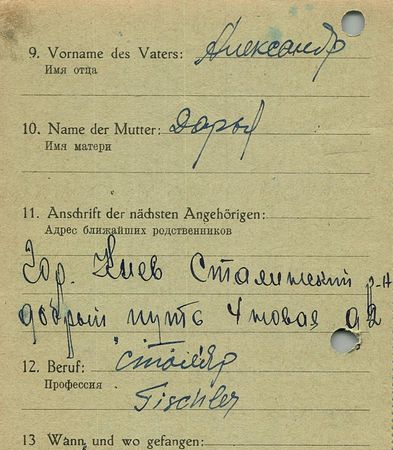 9. Vorname des Vaters: Александр
Имя отца
10. Name der Mutter: Дарья
Имя матери
11. Anschrift der nächsten Angehörigen:
Адрес ближайших родственников
Гор. Киев Сталинский р-н
добрый путь 4 новая д 2
12. Beruf: столяр
Профессия
Tischler
13 Wann und wo gefangen: